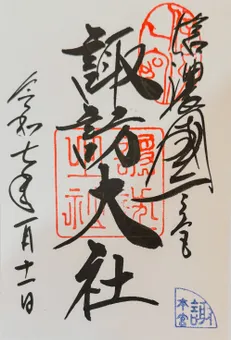 信濃國一之宮
諏訪大社
令和七年一月十一日
本宮